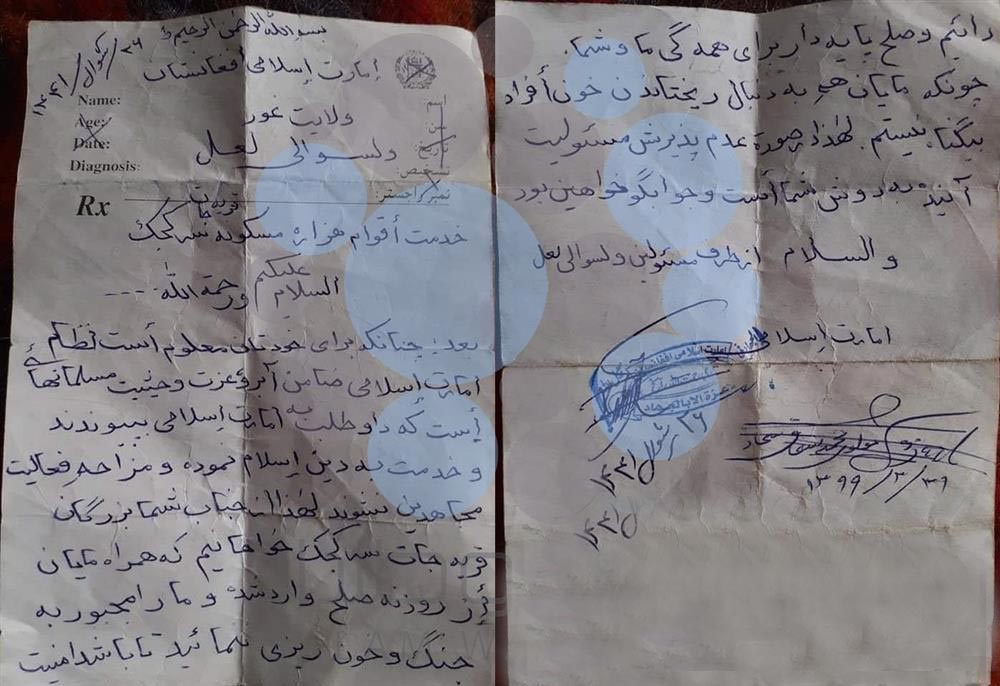 بسم الله الرحمن الرحیم ط
۲۶/شوال/۱۴۴۱
امارت إسلامی أفغانستان
Name: اسم:
Age: سن:
ولایت غور
Date: تاریخ:
ولسوالی لعل
Diagnosis: تشخیص:
Rx نمبر راجستر:
قریه جات
خدمت أقوام هزاره مسکونه سرکجک
السلام علیکم ورحمة الله ---
بعد: چنانکه برای خودتان معلوم أست نظام
أمارت إسلامی ضامن آبرو عزت وحثیت مسلمانهائی
أست که داوطلب به أمارت إسلامی بپیوندند
و خدمت به دین إسلام نموده و مزاحم فعالیت
مجاهدین نشوند لهذا ازجناب شما بزرگان
قریه جات سرکجک خواهانیم که همراه مایان
أز روزنه صلح وارد شده و ما را مجبور به
جنگ وخون ریزی ننمائید تا باشد امنیت
دائیم وصلح پایه دار برای همه گی ما وشما.
چونکه مایان هم به دنبال ریختاندن خون أفراد
بیگناه نیستم. لهذا درصورة عدم پذیرش مسئولیت
آنید به دوش شما أست وجوابگو خواهین بود
والسلام ازطرف مسئولین ولسوالی لعل
امارت إسلامی
۲۶/شوال/۱۴۴۱
۱۳۹۹/۳/۲۹